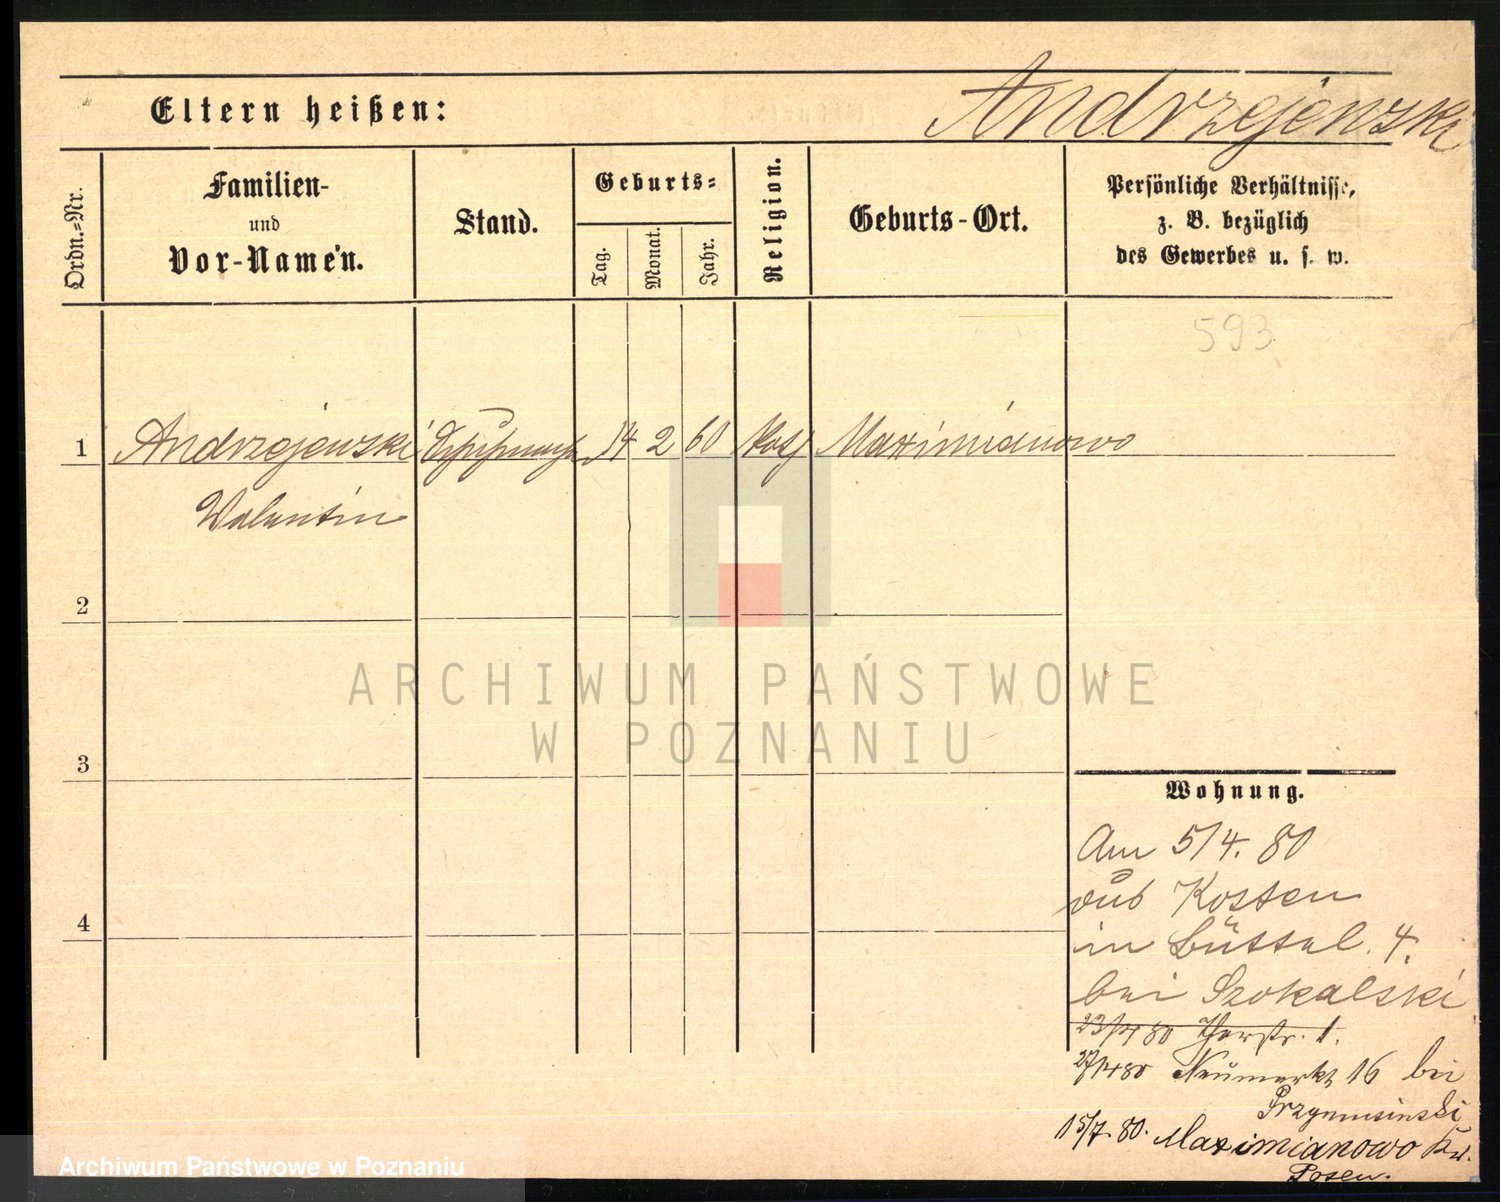 Eltern heißen: Andrzejewski
Ordn.=Nr.
Familien-
und
Vor-Namen.
Stand.
Geburts=
Tag.
Monat.
Jahr.
Religion.
Geburts-Ort.
Persönliche Verhältnisse,
z. B. bezüglich
des Gewerbes u. s. w.
593
1 Andrzejewski 14 2 60 Maximianowo
Valentin
2
3
4
Wohnung.
Am 5/4. 80
aus Kosten
in Büttel. 4.
bei Szokalski
23/4 80 Thorstr. 1.
27/4 80 Neumarkt 16 bei
Przymusinski
15/7. 80. Maximianowo Kr.
Posen.
ARCHIWUM PAŃSTWOWE
W POZNANIU
Archiwum Państwowe w Poznaniu